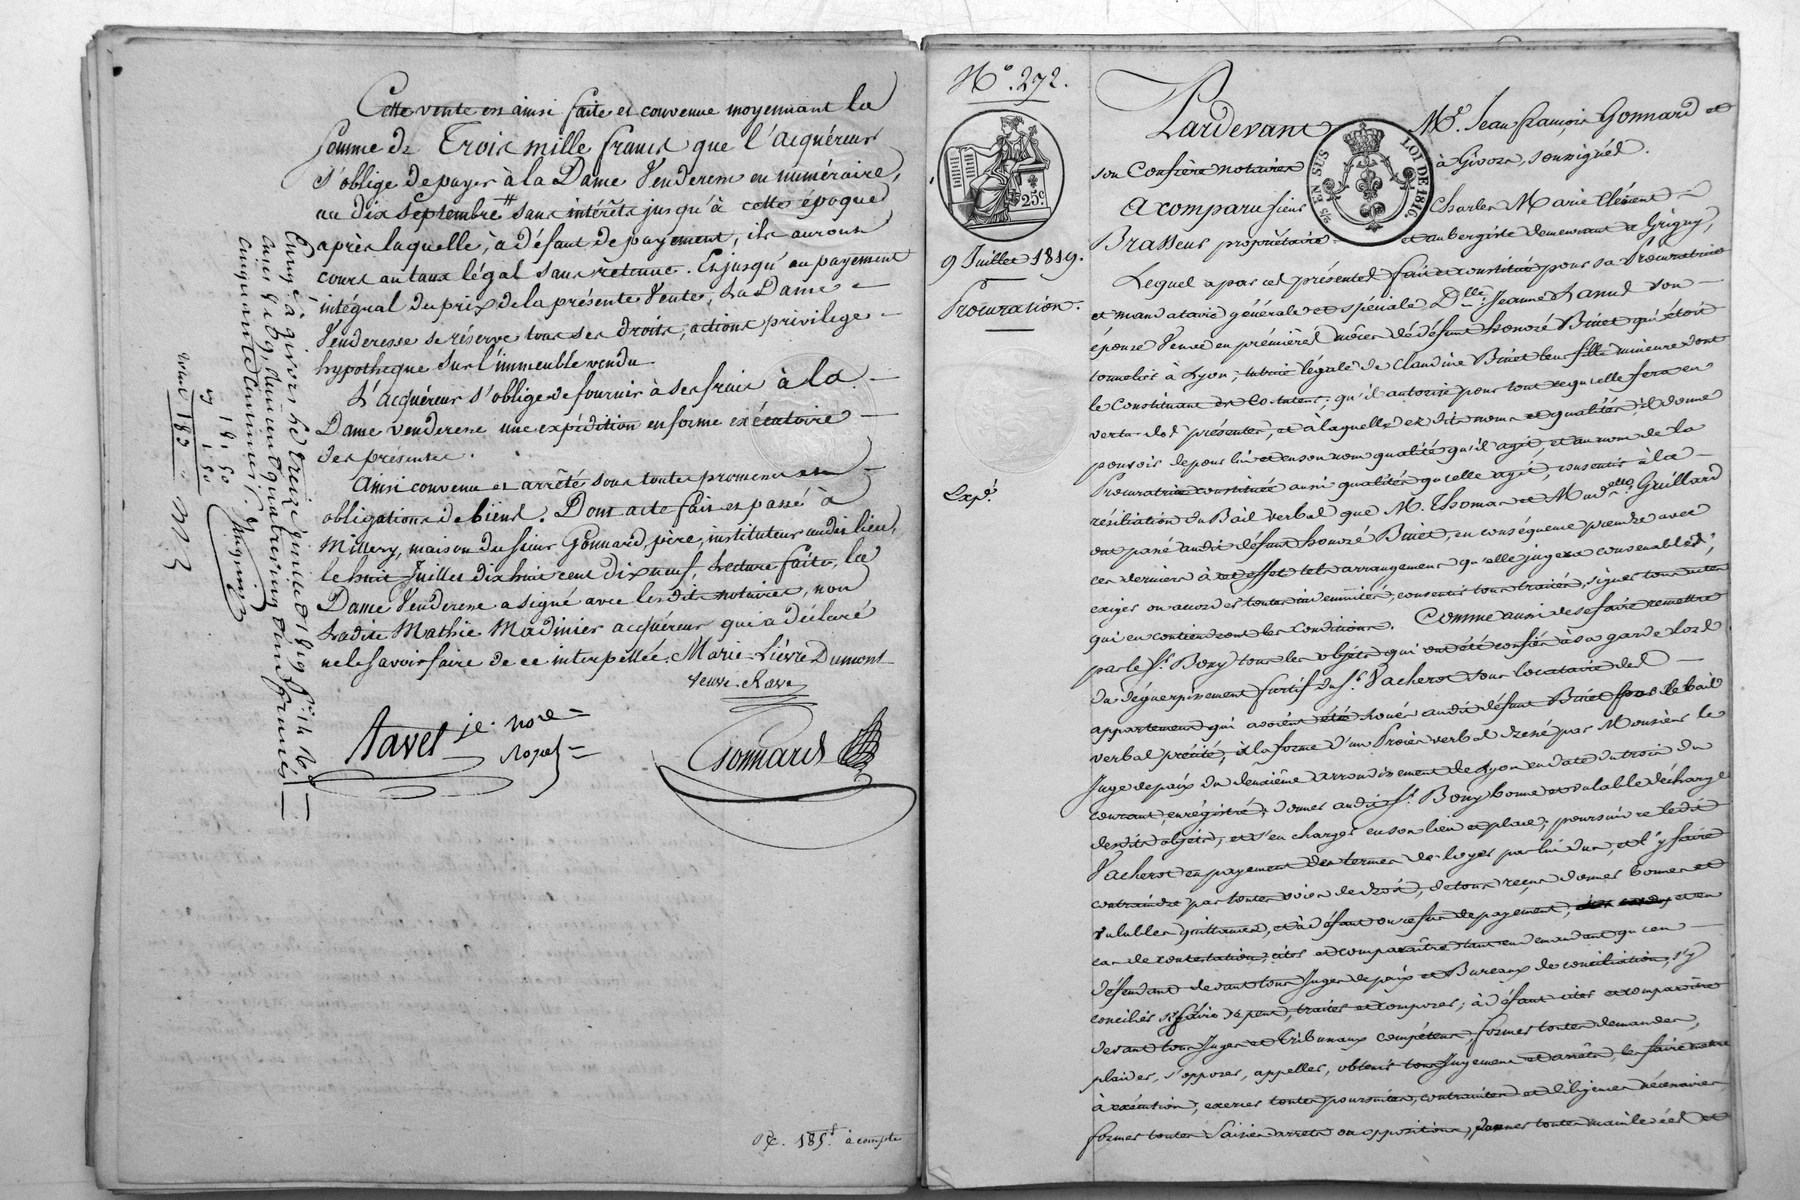 Cette vente est ainsi faite et convenue moyennant la
somme de Trois mille francs que l'acquéreur
s'oblige de payer à la Dame Venderesse en numéraire,
au dix Septembre sans intérêts jusqu'à cette époque
après laquelle, à défaut de payement, ils auront
cours au taux légal sans retenue. Et jusqu'au payement
intégral du prix de la présente Vente, La Dame
Venderesse se réserve tous ses droits, actions privilege
hypotheque sur l'immeuble vendu
L'acquéreur s'oblige de fournir à ses frais à la
Dame venderesse une expédition en forme exécutoire
des présentes.
Ainsi convenu et arrêté sous toutes promesses
obligations de biens. Dont acte fait et passé à
Millery, maison du sieur Gonnard, père, instituteur audit lieu,
le huit Juillet dix huit cent dix neuf, Lecture faite, la
Dame Venderesse a signé avec lesdits notaires, non
Ladite Mathie Madinier acquéreur qui a déclaré
ne le savoir faire de ce interpellée. Marie Lievre Dumont
veuve
Tavel je. no.re
Royal
Gonnard
à Givors le treize juillet 1819 f.o 14
cent quatre vingt un francs
cinquante centimes
181 50
à compte
N.o 272.
25 c
9 Juillet 1819.
Procuration.
Exp.é
Pardevant M.e Jean françois Gonnard et
5/5 EN SUS LOI DE 1816
son Confrère notaires à Givors, soussignés.
A comparu sieur Charles Marie Clément
Brasseur propriétaire et aubergiste demeurant à Grigny,
Lequel a par ces présentes fait et constitué pour sa Procuratrice
et mandataire générale et spéciale D.lle Jeanne son
épouse Veuve en premières noces de défunt honoré Binet qui étoit
tonnelier à Lyon, tutrice légale de Claudine Binet leur fille mineure dont
le Constituant est Co-tuteur; qu'il autorise pour tout ce qu'elle fera en
vertu des présentes, et à laquelle et dits noms et qualités, il donne
pouvoir de pour lui et en son nom qualité qu'il agit, et au nom de la
Procuratrice constituée aussi qualités qu'elle agit, consentir à la
résiliation du Bail verbal que M. Thomas et Mad.elle Guillard
ont passé audit défunt honoré Binet, en conséquence prendre avec
ces derniers à cet effet tels arrangemens qu'elle jugera convenables;
exiger ou accorder toutes indemnités, consentir tous traités, signer tous actes
qui en contiendront les conditions. Comme aussi de se faire remettre
par le S.r Bony tous les objets qui ont été confiés à sa garde lors
du déguerpissement furtif du S.r Vacherot sous locataire des
appartemens qui avoient été loués audit défunt Binet par le bail
verbal précité, à la forme d'un Procès verbal dressé par Monsieur le
Juge de paix du deuxième arrondissement de Lyon en date du trois du
courant, enregistré; donner audit S.r Bony bonne et valable décharge
desdits objets, et s'en charger en son lieu et place; poursuivre ledit
Vacherot en payement des termes de loyer par lui dus, et l'y faire
contraindre par toutes voies de droit, de tous reçus donner bonnes et
valables quittances, et à défaut ou refus de payement, et en
cas de contestation citer et comparaître tant en demandant qu'en
défendant devant tous Juges de paix et Bureaux de conciliation, s'y
concilier si faire se peut, traiter et composer; à défaut citer et comparoître
devant tous Juges et Tribunaux compétens, former toutes demandes,
plaider, s'opposer, appeller, obtenir tous Jugemens et arrêts, les faire mettre
à exécution, exercer toutes poursuites, contraintes et diligences nécessaires
former toutes Saisies arrêts ou oppositions, donner toutes mainlevées et